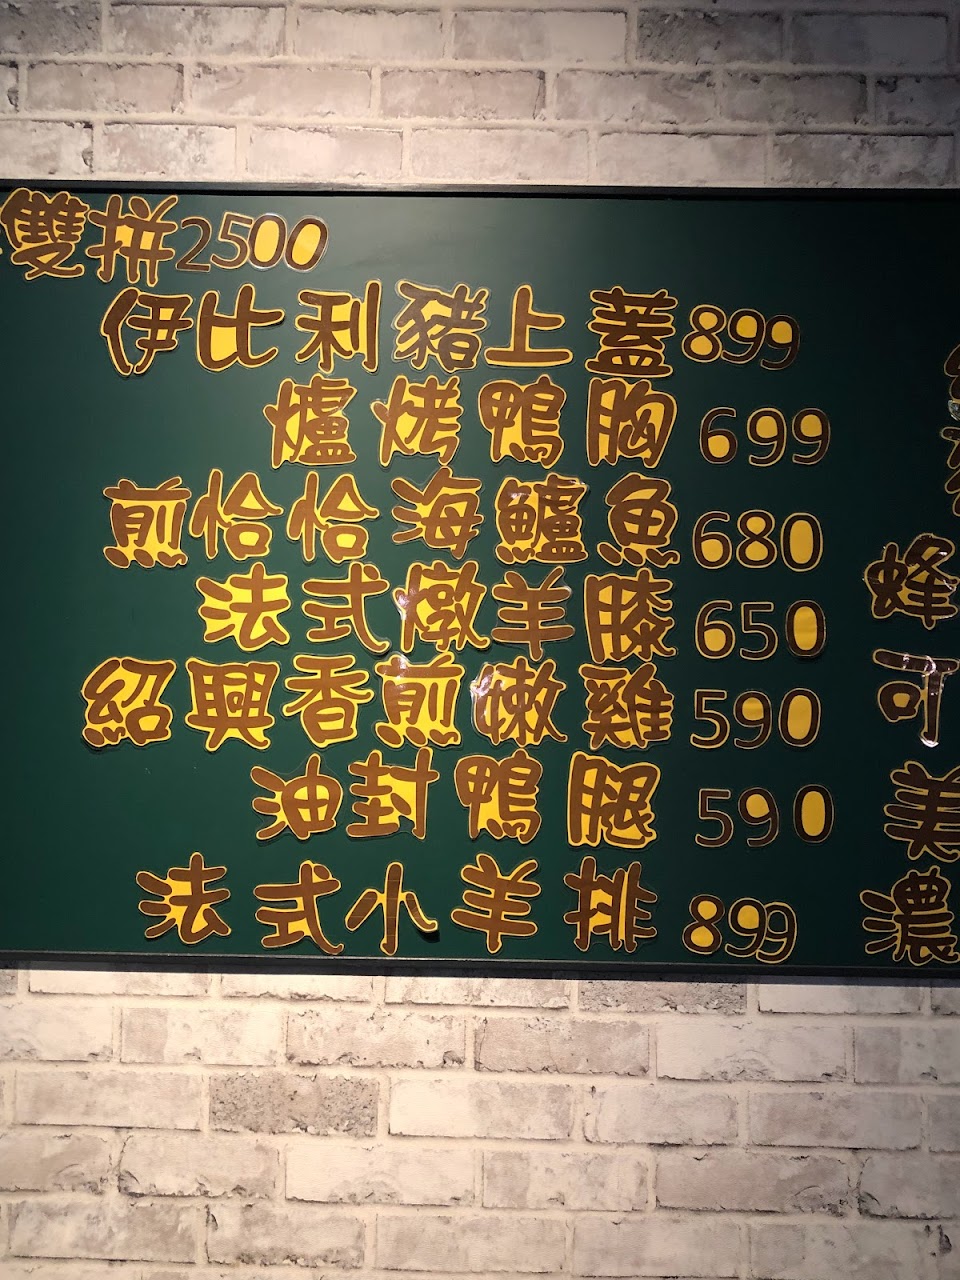 雙拼2500
伊比利豬上蓋899
爐烤鴨胸699
煎恰恰海鱸魚680
法式燉羊膝650
紹興香煎嫩雞590
油封鴨腿590
法式小羊排899
蜂
可
美
濃